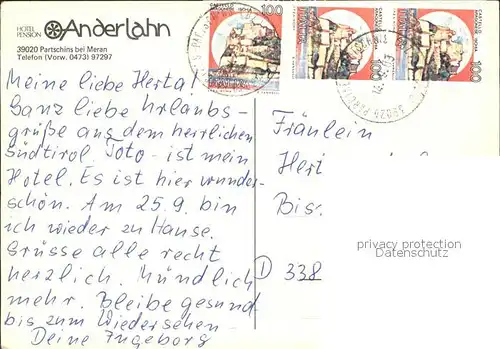 HOTEL PENSION Anderlahn
39020 Partschins bei Meran
Telefon (Vorw. 0473) 97297
Meine liebe Herta!
Ganz liebe Urlaubs-
grüße aus dem herrlichen
Südtirol. Foto - ist mein
Hotel. Es ist hier wunder-
schön. Am 25.9. bin
ich wieder zu Hause.
Grüsse alle recht
herzlich. Mündlich
mehr. Bleibe gesund
bis zum Wiedersehen -
Deine Ingeborg
100
100
100
CASTELLO
CASTELLO
Fräulein
Her
Bis
privacy protection
Datenschutz
D 338